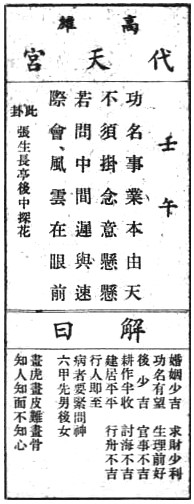 高雄
代天宮
壬午
功名事業本由天
不須掛念意懸懸
若問中間遲與速
際會、風雲在眼前
此卦 張生長亭後中探花
解曰
婚姻少吉 求財少利
功名有望 生理前好
後少吉 官事不吉
耕作半收 討海不吉
建居平平 行舟不吉
行人即至
病者要緊問神
六甲先男後女
畫虎畫皮難畫骨
知人知面不知心